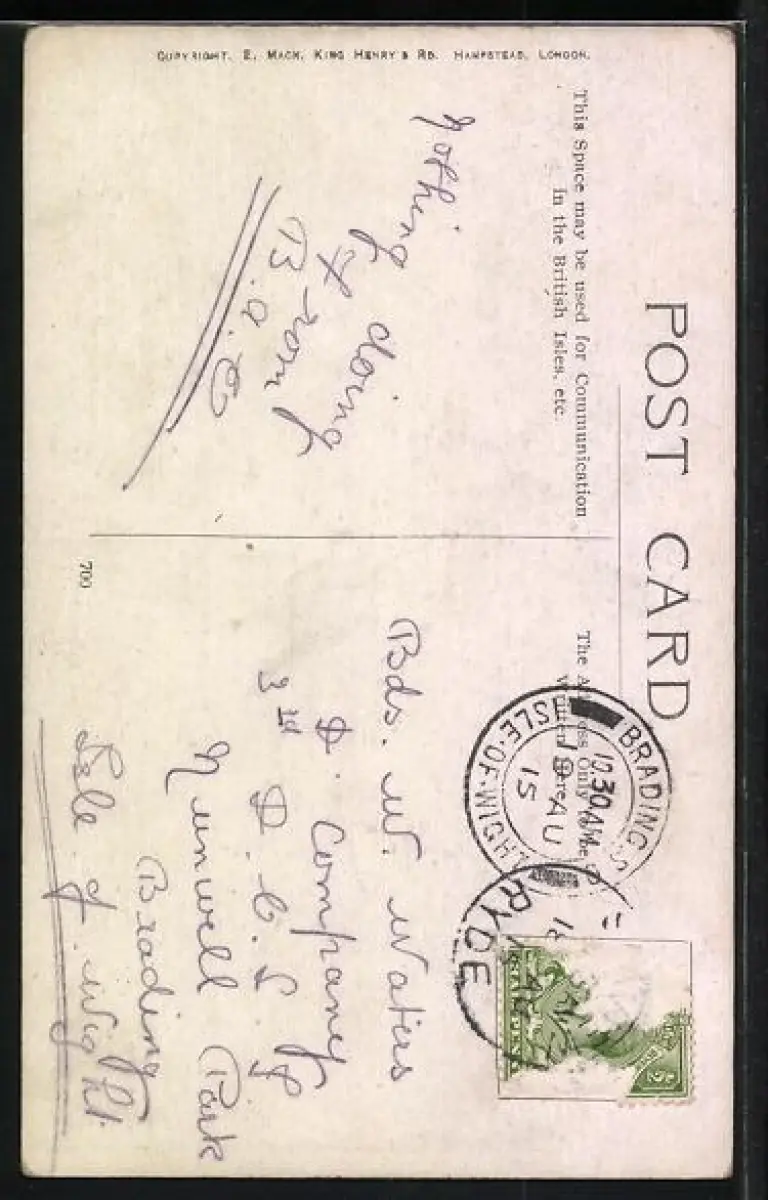 COPYRIGHT. E. MACK, KING HENRY'S RD. HAMPSTEAD, LONDON.
POST CARD
This Space may be used for Communication
in the British Isles, etc.
The Address Only to be
Written Here
Nothing doing
from
B.A.C
700
Bds. W. Waters
D. Company
3rd D. C. L. I
Nunwell Park
Brading
Isle of Wight.
BRADING S
10.30 AM
AU
15
ISLE-OF-WIGHT
RYDE